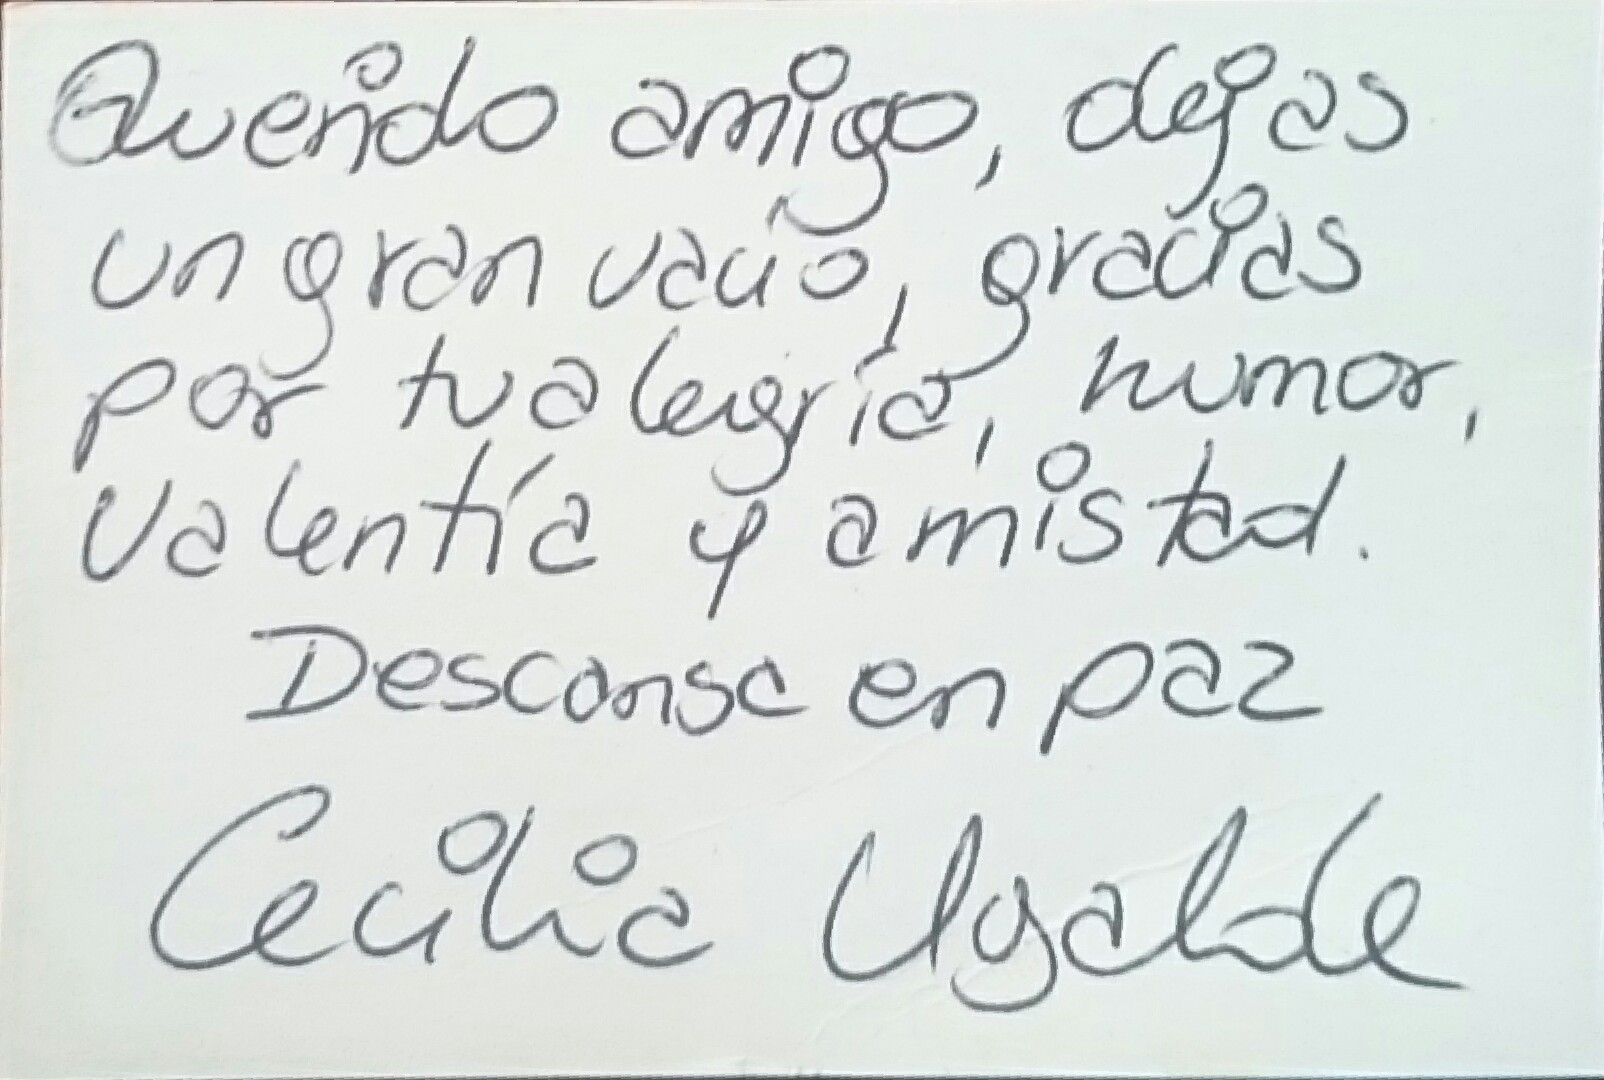 Querido amigo, dejas
un gran vacío, gracias
por tu alegría, humor,
valentía y amistad.
Descansa en paz
Cecilia Ugalde